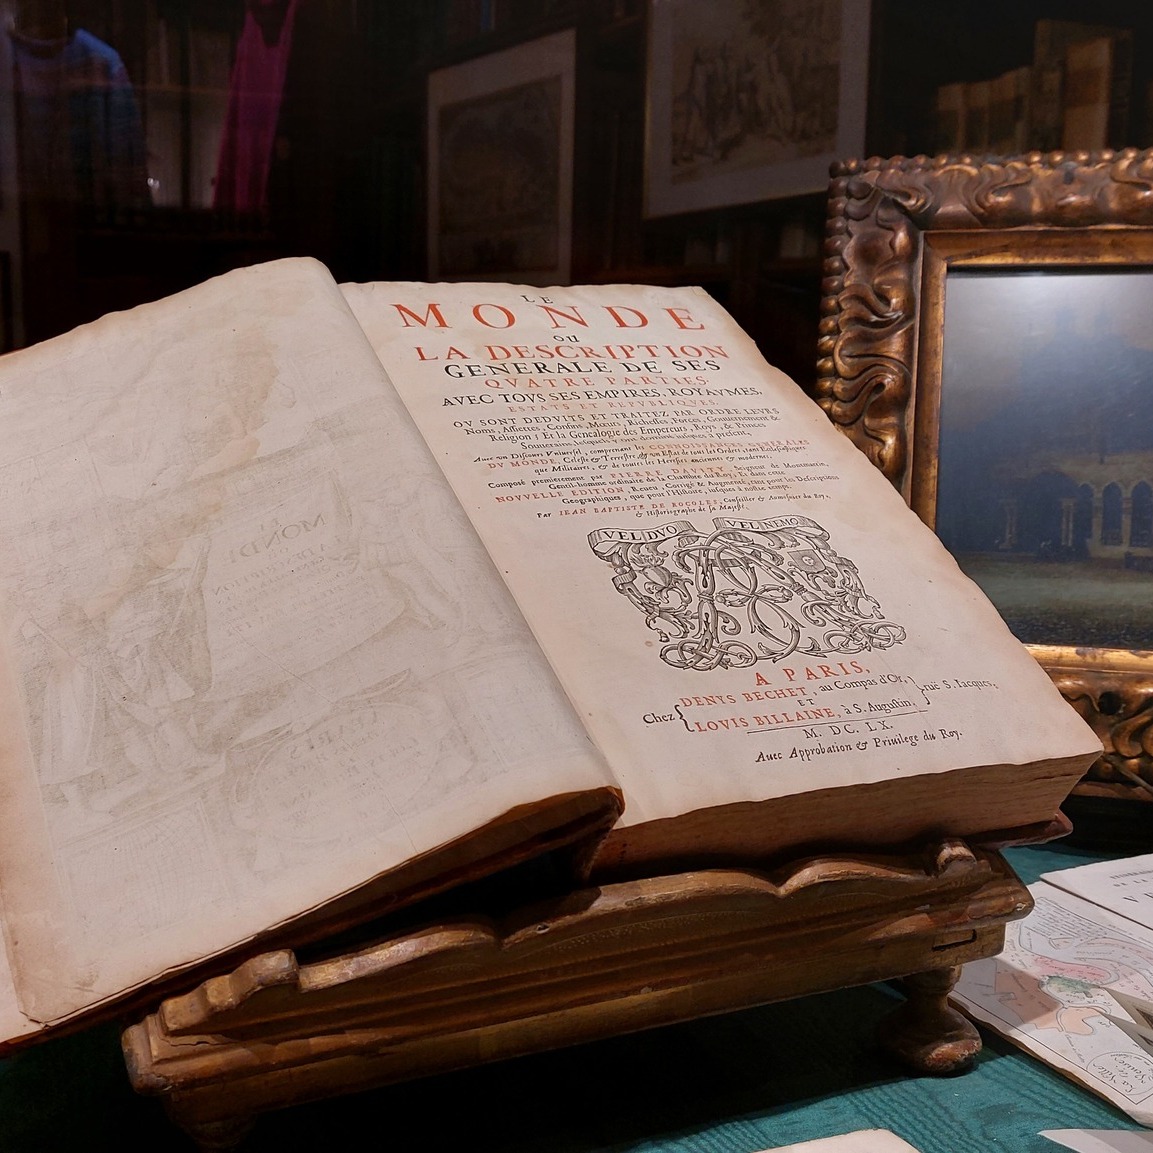 LE
MONDE
OU
LA DESCRIPTION
GENERALE DE SES
QVATRE PARTIES,
AVEC TOVS SES EMPIRES, ROYAVMES,
ESTATS ET REPVBLIQVES.
OV SONT DEDVITS ET TRAITEZ PAR ORDRE LEVRS
Noms, Assiettes, Confins, Mœurs, Richesses, Forces, Gouuernement &
Religion; Et la Genealogie des Empereurs, Roys, & Princes
Souuerains, lesquels y ont dominé iusques à present.
Auec vn Discours Vniuersel, comprenant les CONNOISSANCES GENERALES
DV MONDE, Celeste & Terrestre, & vn Estat de tous les Ordres, tant Ecclesiastiques
que Militaires, & de toutes les Heresies anciennes & modernes;
Composé premierement par PIERRE DAVITY, Seigneur de Montmartin,
Gentil-homme ordinaire de la Chambre du Roy, Et dans cette
NOVVELLE EDITION, Reueu, Corrigé & Augmenté, tant pour les Descriptions
Geographiques, que pour l'Histoire, iusques à nostre temps.
Par IEAN BAPTISTE DE ROCOLES, Conseiller & Aumosnier du Roy,
& Historiographe de sa Majesté.
VEL DVO VEL NEMO
A PARIS,
Chez DENYS BECHET, au Compas d'Or,
ET
LOVIS BILLAINE, à S. Augustin,
ruë S. Iacques.
M. DC. LX.
Auec Approbation & Priuilege du Roy.